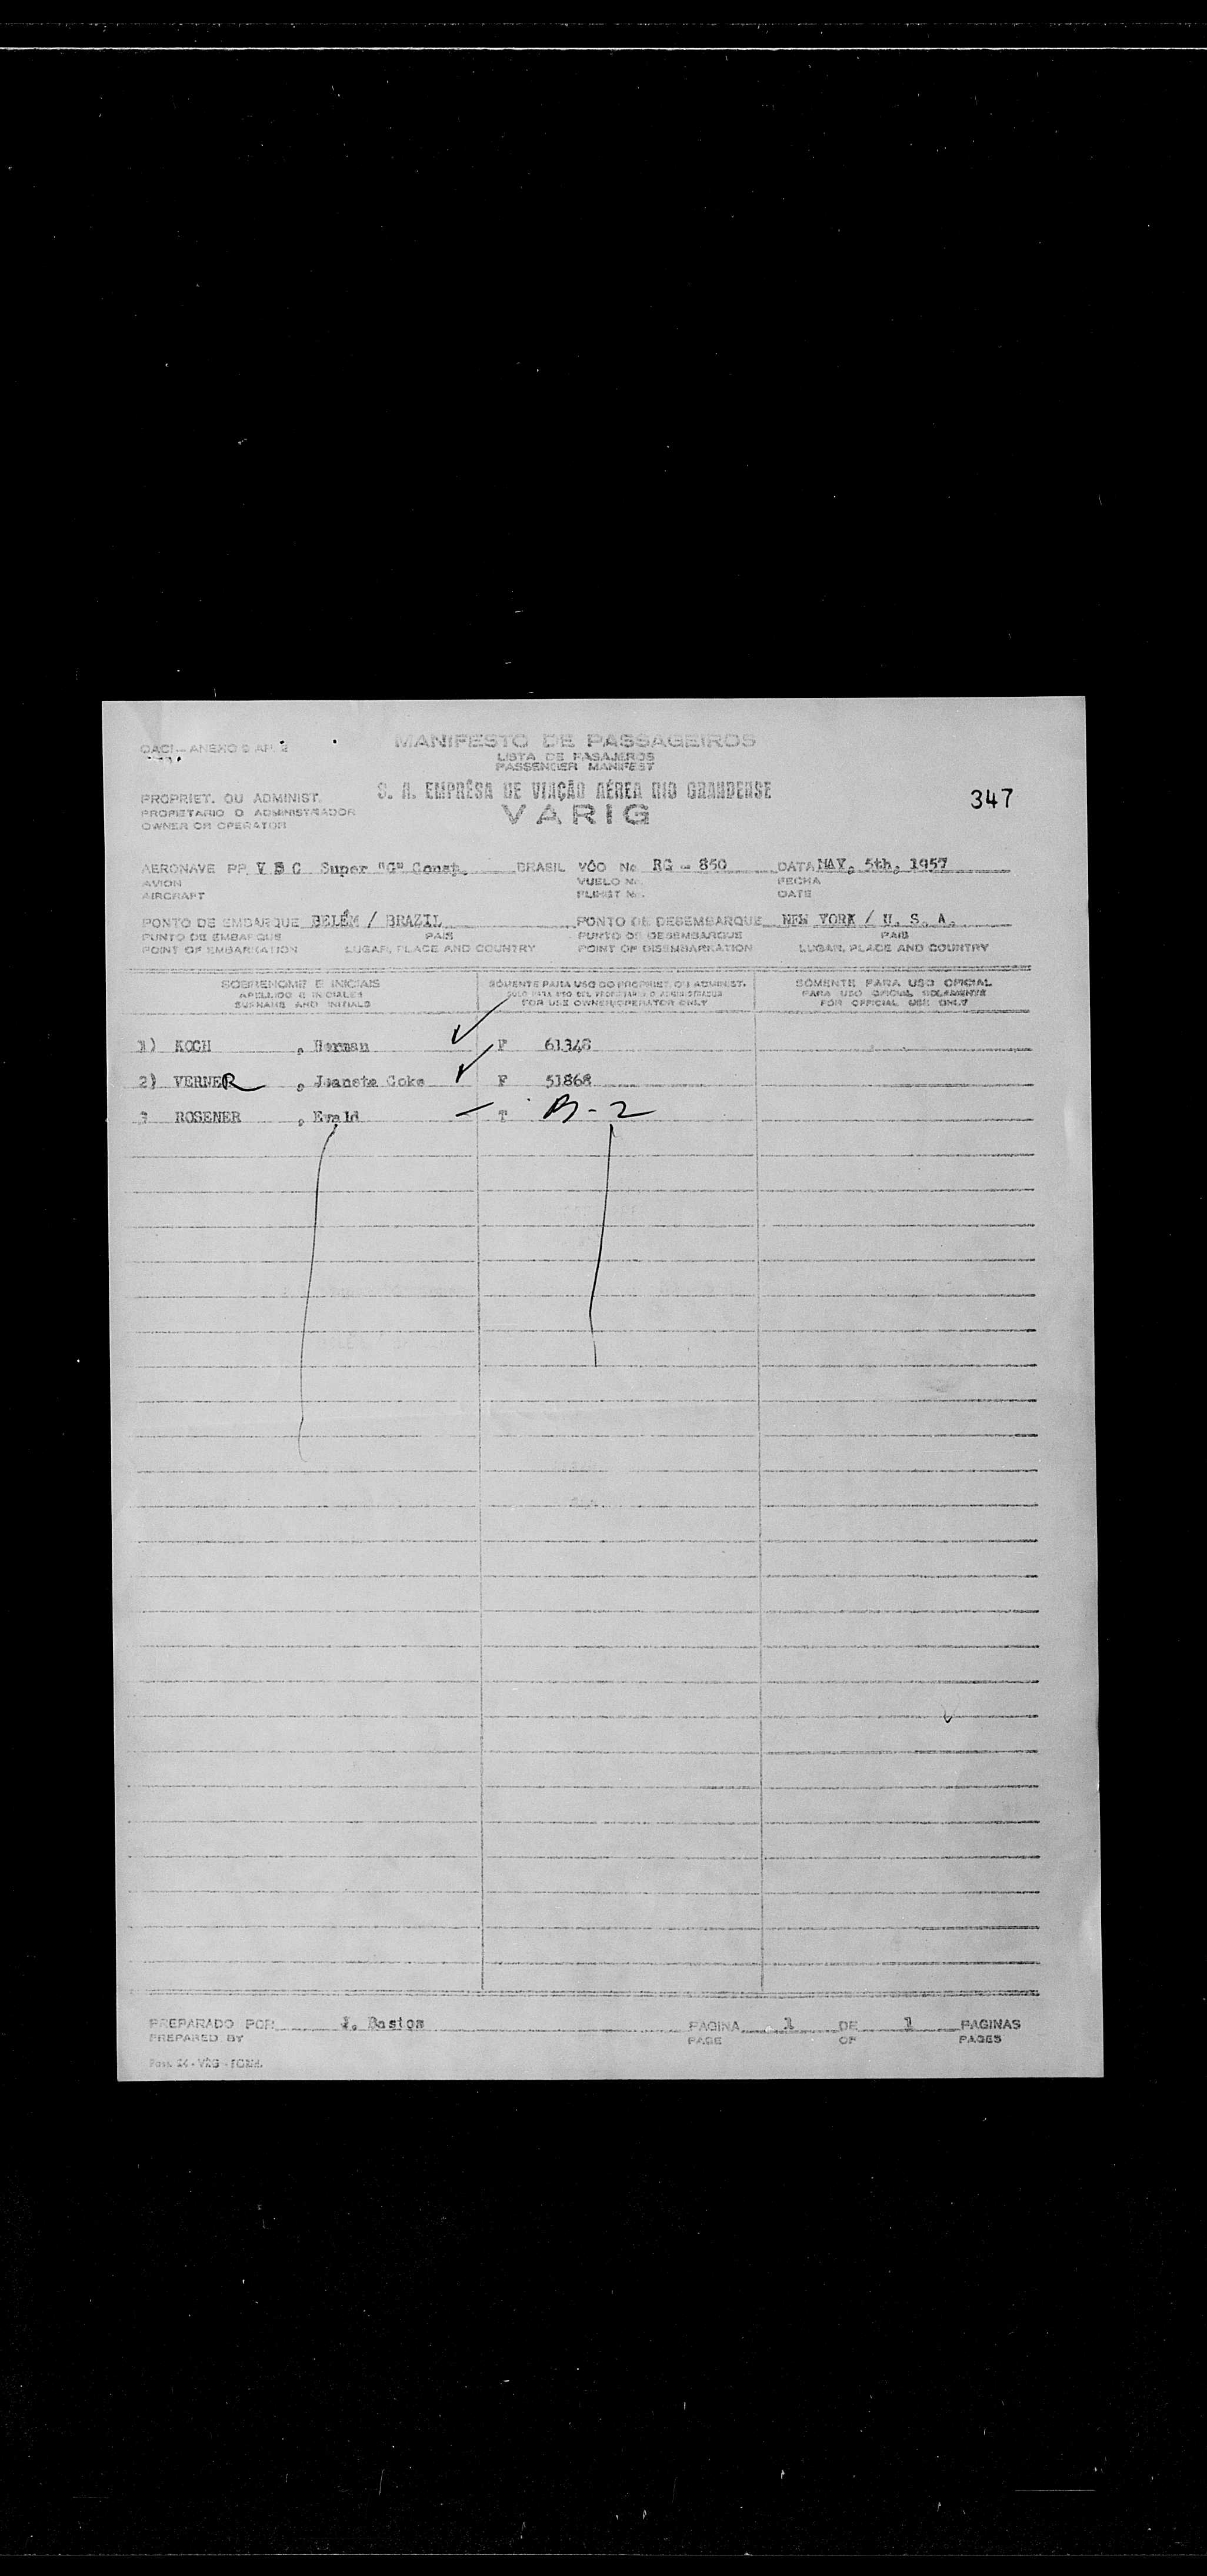 OACI - ANEXO 9 AP. 2
MANIFESTO DE PASSAGEIROS
LISTA DE PASAJEROS
PASSENGER MANIFEST
S. A. EMPRÊSA DE VIAÇÃO AÉREA RIO GRANDENSE
VARIG
347
PROPRIET. OU ADMINIST.
PROPIETARIO O ADMINISTRADOR
OWNER OR OPERATOR
AERONAVE PP. V D C Super "G" Const. BRASIL VÔO No RG - 850 DATA MAY, 5th, 1957
AVION VUELO N. FECHA
AIRCRAFT FLIGHT N. DATE
PONTO DE EMBARQUE BELÉM / BRAZIL PONTO DE DESEMBARQUE NEW YORK / U. S. A.
PUNTO DE EMBARQUE PAIS PUNTO DE DESEMBARQUE PAIS
POINT OF EMBARKATION LUGAR, PLACE AND COUNTRY POINT OF DISEMBARKATION LUGAR, PLACE AND COUNTRY
SOBRENOME E INICIAIS SÒMENTE PARA USO DO PROPRIET. OU ADMINIST. SÒMENTE PARA USO OFICIAL
APELLIDO E INICIALES SOLO PARA USO DEL PROPIETARIO O ADMINISTRADOR PARA USO OFICIAL SOLAMENTE
SURNAME AND INITIALS FOR USE OWNER/OPERATOR ONLY FOR OFFICIAL USE ONLY
1) KOCH , Herman F 61348
2) VERNER , Juaneta Coke F 51868
3 ROSENER , Ewald T B-2
PREPARADO POR J. Bastos PAGINA 1 DE 1 PAGINAS
PREPARED BY PAGE OF PAGES